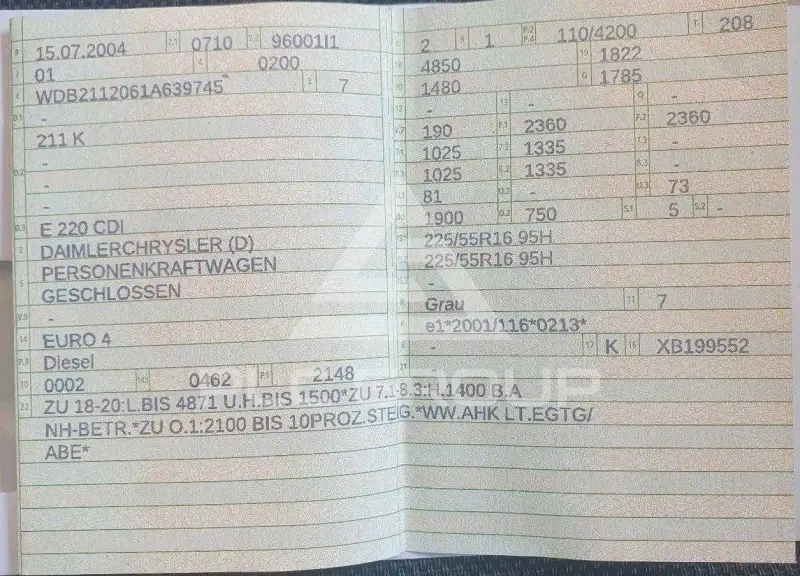 B 15.07.2004 2.1 0710 2.2 96001I1
J 01 4 0200
E WDB2112061A639745 3 7
D.1 -
211 K
D.2 -
-
-
D.3 E 220 CDI
2 DAIMLERCHRYSLER (D)
5 PERSONENKRAFTWAGEN
GESCHLOSSEN
V.9 -
14 EURO 4
P.3 Diesel
10 0002 14.1 0462 P.1 2148
22 ZU 18-20:L.BIS 4871 U.H.BIS 1500*ZU 7.1-8.3:H.1400 B.A
NH-BETR.*ZU O.1:2100 BIS 10PROZ.STEIG.*WW.AHK LT.EGTG/
ABE*
L 2 9 1 P.2 P.4 110/4200 T 208
18 4850 19 1822
20 1480 G 1785
12 - 13 - Q -
V.7 190 F.1 2360 F.2 2360
7.1 1025 7.2 1335 7.3 -
8.1 1025 8.2 1335 8.3 -
U.1 81 U.2 - U.3 73
O.1 1900 O.2 750 S.1 5 S.2 -
15 225/55R16 95H
225/55R16 95H
-
R Grau 11 7
K e1*2001/116*0213*
6 - 17 K 16 XB199552
21 -
GROUP